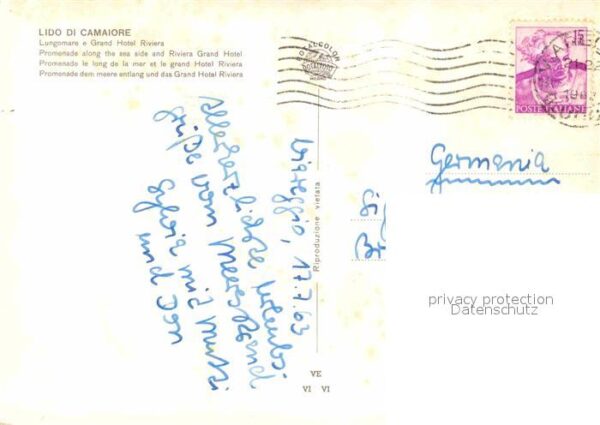 LIDO DI CAMAIORE
Lungomare e Grand Hotel Riviera
Promenade along the sea side and Riviera Grand Hotel
Promenade le long de la mer et le grand Hotel Riviera
Promenade dem meere entlang und das Grand Hotel Riviera
DALCOLOR
15
POSTE ITALIANE
Viareggio, 17.7.63
Allerherzlichste Urlaubs-
grüße vom Meeresstrand
Sylvia mit Mutti
und Don
Riproduzione vietata
Germania
Si
Br
VE
VI VI
privacy protection
Datenschutz